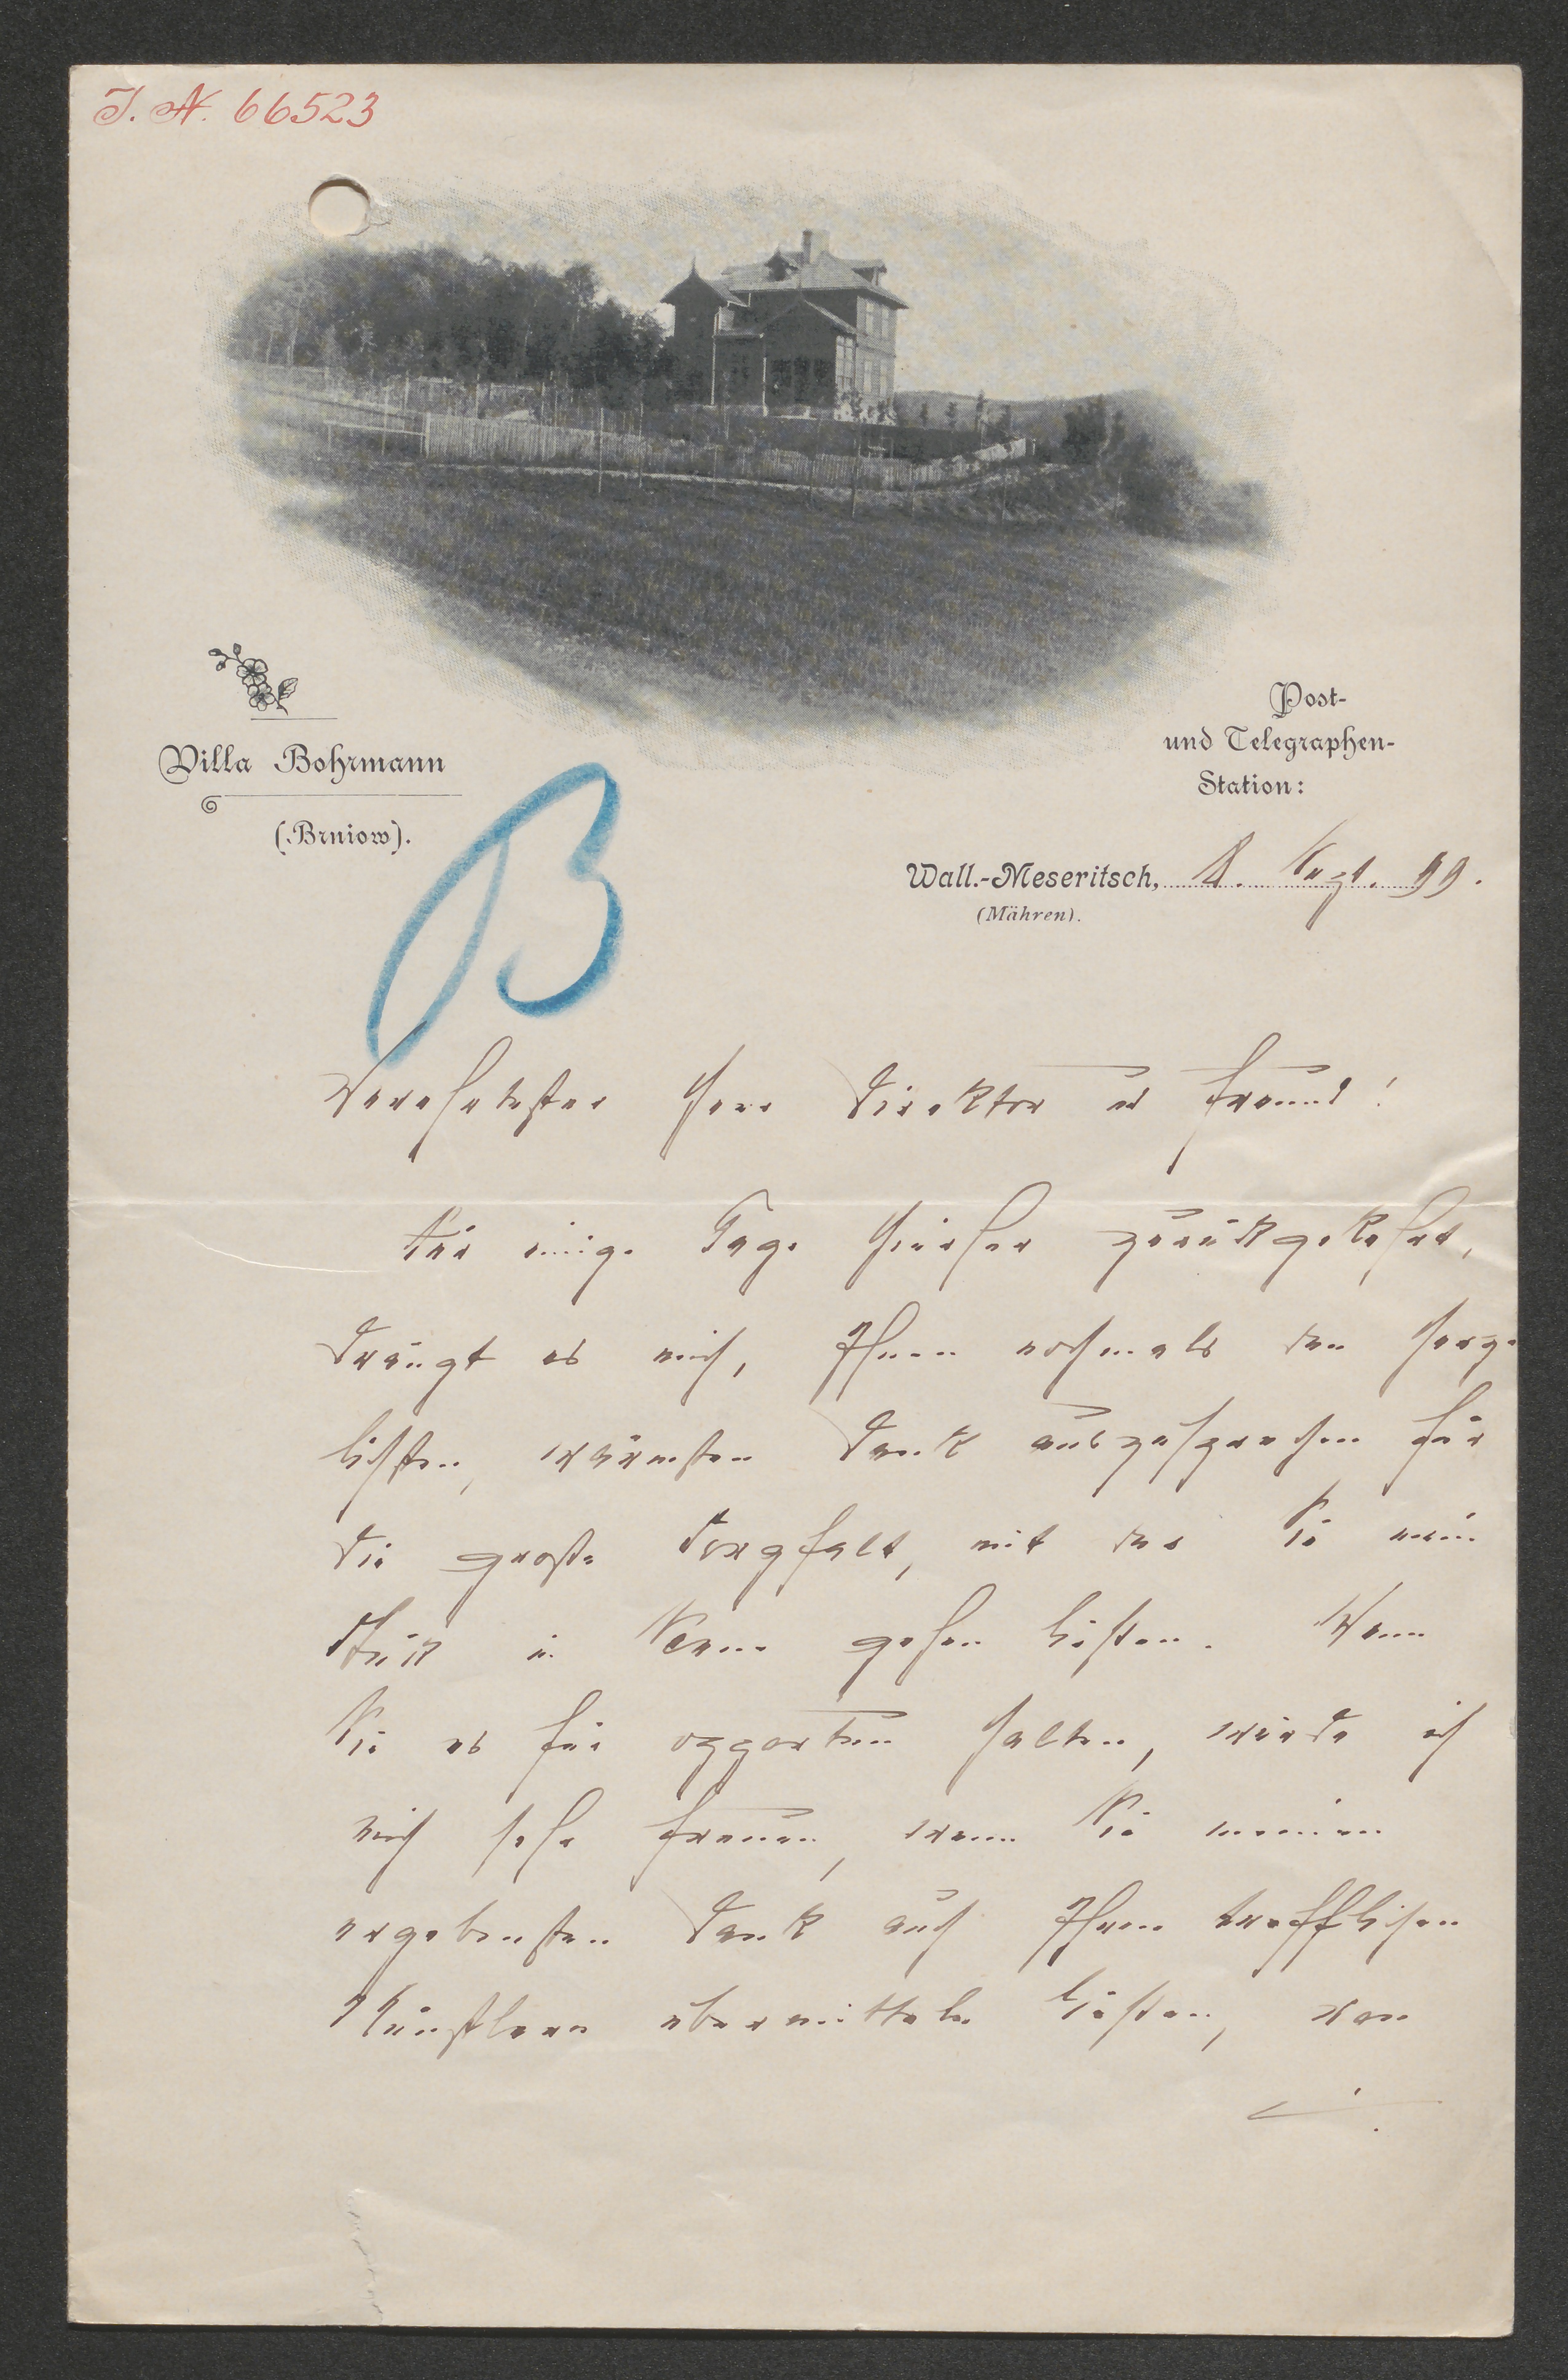 J. N. 66523
Villa Bohrmann
(Brniow).
Post-
und Telegraphen-
Station:
B
Wall.-Meseritsch, 8. Sept. 99.
(Mähren).
Verehrtester Herr Direktor u Freund!
Für einige Tage hierher zurückgekehrt,
drängt es mich, Ihnen nochmals den herz-
lichsten, wärmsten Dank auszusprechen für
die große Sorgfalt, mit der Sie mein
Stück in Scene gehen ließen. Wenn
Sie es für opportun halten, würde ich
mich sehr freuen, wenn Sie meinen
ergebensten Dank auch Ihren trefflichen
Künstlern übermitteln ließen, von